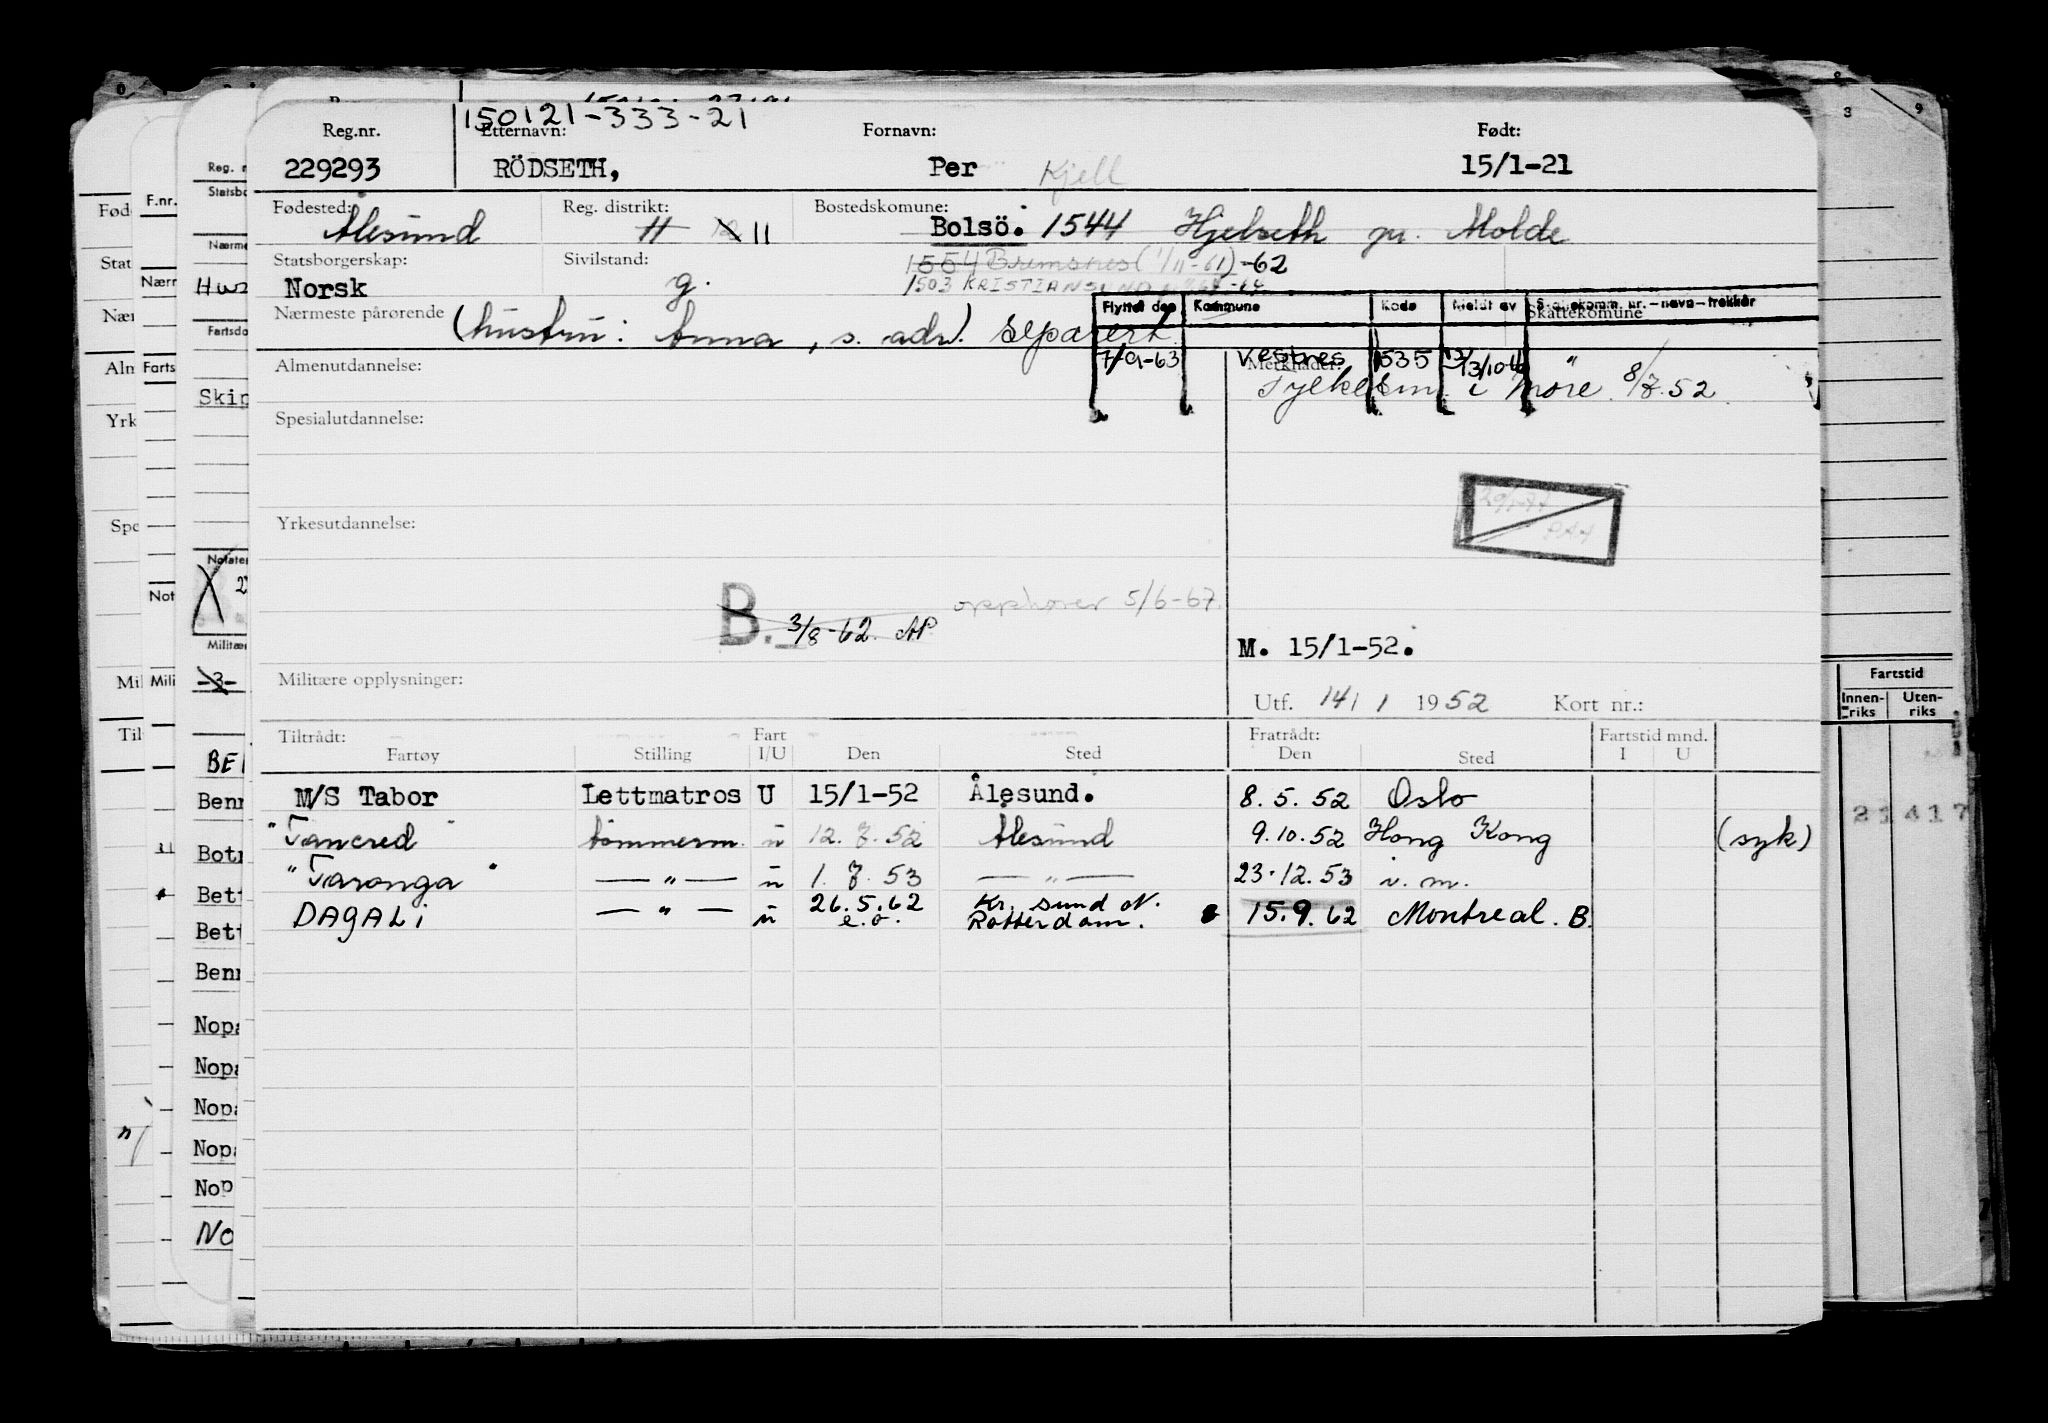 150121-333-21
Reg.nr. Etternavn: Fornavn: Født:
229293 RÖDSETH, Per Kjell 15/1-21
Fødested: Reg. distrikt: Bostedskomune:
Ålesund 11 Bolsö. 1544 Hjelseth pr. Molde
Statsborgerskap: Sivilstand: 1554 Bremsnes (1/11-61)-62
Norsk g. 1503 KRISTIANSUND
Flyttet den Kommune Kode Meldt av Skattekomm. nr. – navn – trekkår
Nærmeste pårørende (hustru: Anna, s. adr.) separert Skattekomune
7/9-63 Vestnes 1535 "
Almenutdannelse: Merknader: Fylkeskm. i Møre. 8/7.52
Spesialutdannelse:
Yrkesutdannelse:
B. 3/8-62. AP. opphører 5/6-67.
M. 15/1-52.
Militære opplysninger:
Utf. 14/1 1952 Kort nr.:
Tiltrådt: Fart Fratrådt: Fartstid mnd.
Fartøy Stilling I/U Den Sted Den Sted I U
M/S Tabor Lettmatros U 15/1-52 Ålesund. 8.5.52 Oslo
"Tancred" tømmerm. u 12.7.52 Ålesund 9.10.52 Hong Kong (syk)
"Taronga" — " — u 1.7.53 — " — 23.12.53 u.m.
DAGALI — " — u 26.5.62 Kr. sund N. 15.9.62 Montreal. B.
e.o. Rotterdam.
Fartstid
Innen-riks Uten-riks
21417